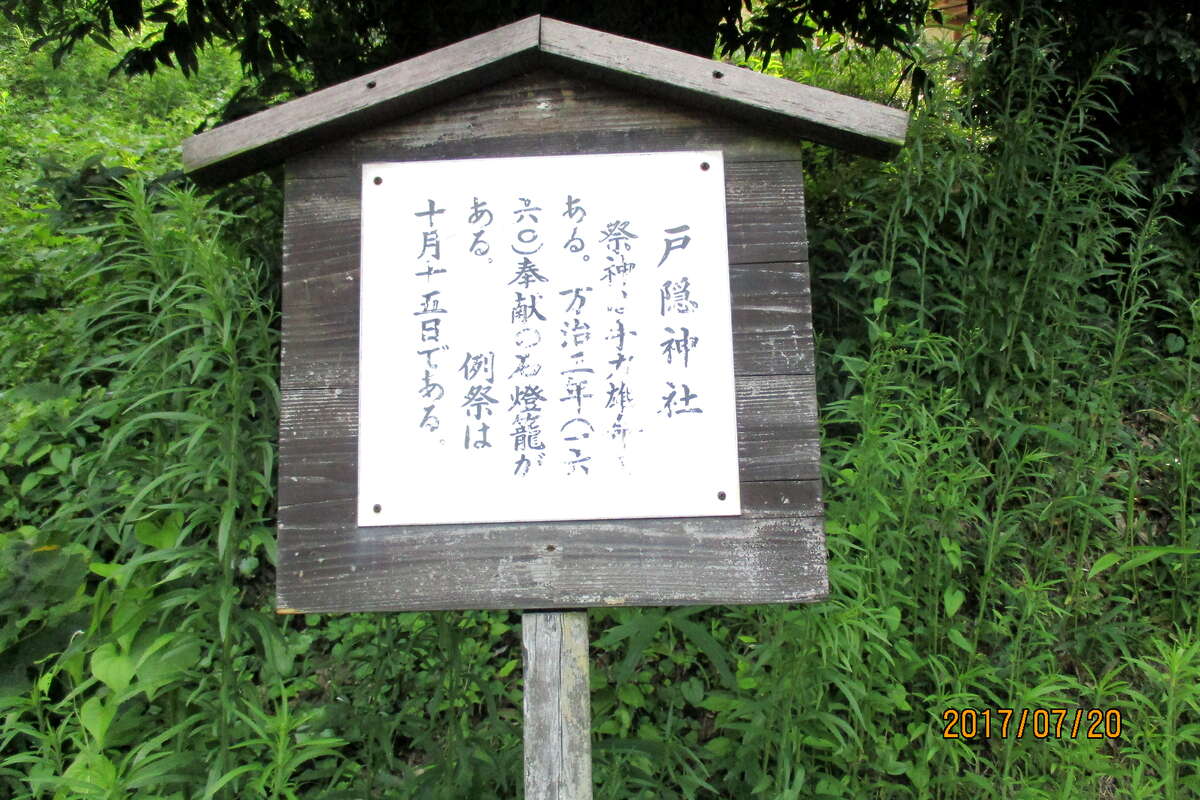 戸隠神社
祭神は手力雄命で
ある。万治三年(一六
六〇)奉献の石燈籠が
ある。 例祭は
十月十五日である。
2017/07/20